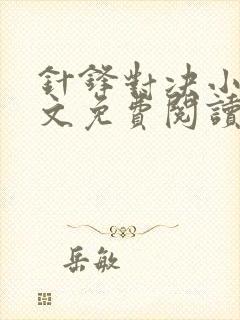 針鋒對决小
文免費閱讀
岳敏